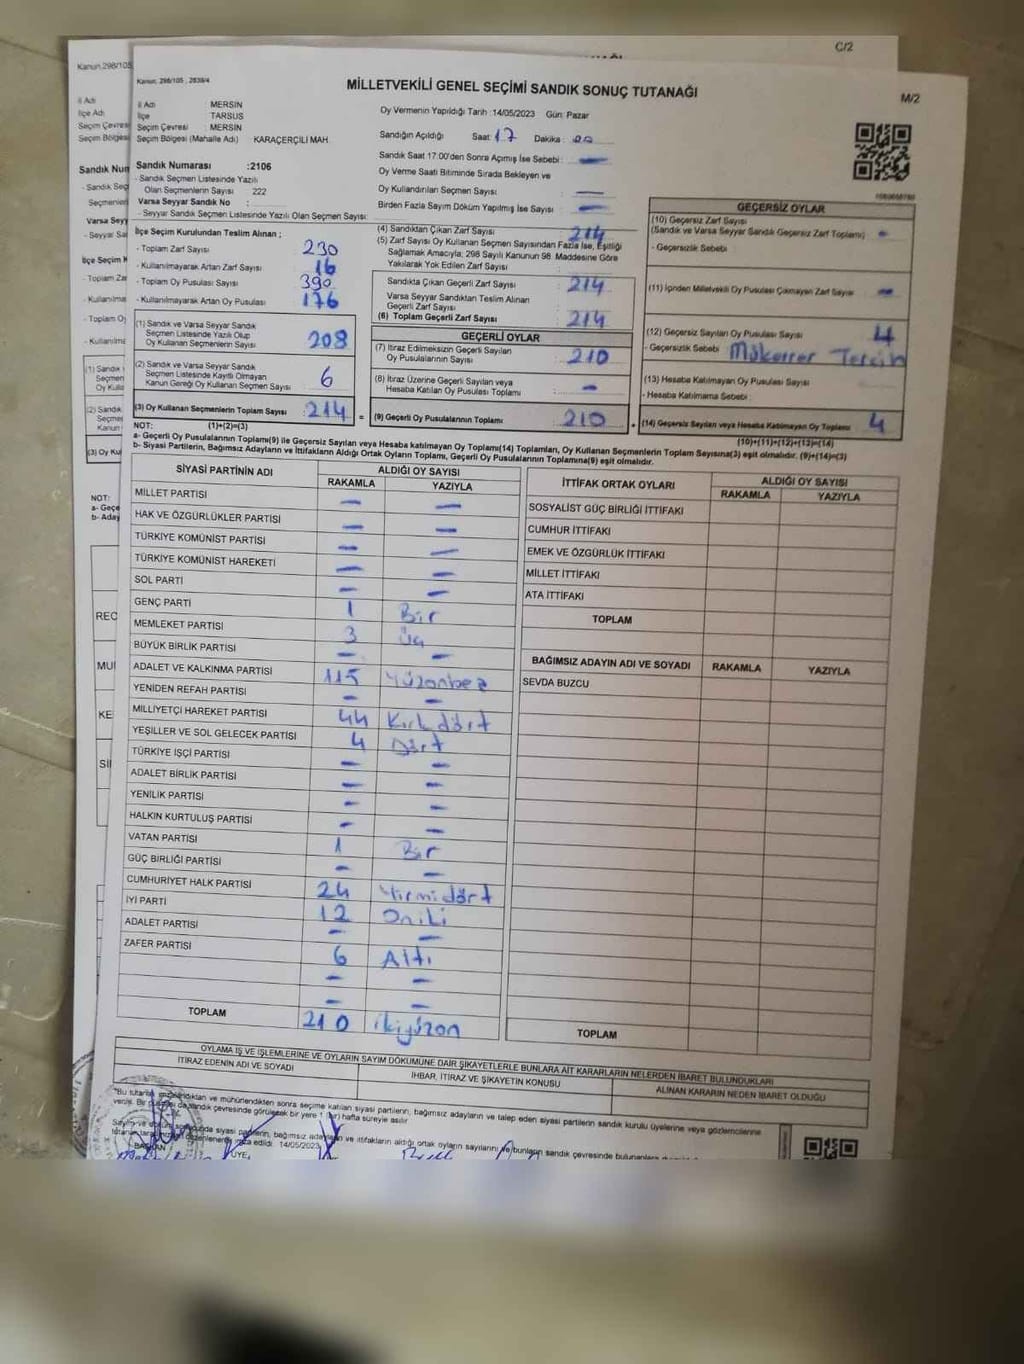 C/2
Kanun, 298/105 , 2839/4
MİLLETVEKİLİ GENEL SEÇİMİ SANDIK SONUÇ TUTANAĞI
M/2
İl Adı : MERSİN
İlçe : TARSUS
Seçim Çevresi : MERSİN
Seçim Bölgesi (Mahalle Adı) : KARAÇERÇİLİ MAH.
Sandık Numarası :2106
- Sandık Seçmen Listesinde Yazılı
Olan Seçmenlerin Sayısı : 222
Varsa Seyyar Sandık No :
- Seyyar Sandık Seçmen Listesinde Yazılı Olan Seçmen Sayısı:
Oy Vermenin Yapıldığı Tarih :14/05/2023 Gün: Pazar
Sandığın Açıldığı Saat: 17 Dakika : 00
Sandık Saat 17:00'den Sonra Açımış İse Sebebi : —
Oy Verme Saati Bitiminde Sırada Bekleyen ve
Oy Kullandırılan Seçmen Sayısı : —
Birden Fazla Sayım Döküm Yapılmış İse Sayısı : —
İlçe Seçim Kurulundan Teslim Alınan ;
- Toplam Zarf Sayısı : 230
- Kullanılmayarak Artan Zarf Sayısı : 16
- Toplam Oy Pusulası Sayısı : 390
- Kullanılmayarak Artan Oy Pusulası : 176
(1) Sandık ve Varsa Seyyar Sandık
Seçmen Listesinde Yazılı Olup
Oy Kullanan Seçmenlerin Sayısı 208
(2) Sandık ve Varsa Seyyar Sandık
Seçmen Listesinde Kayıtlı Olmayan
Kanun Gereği Oy Kullanan Seçmen Sayısı 6
(3) Oy Kullanan Seçmenlerin Toplam Sayısı 214 =
(1)+(2)=(3)
(4) Sandıktan Çıkan Zarf Sayısı : 214
(5) Zarf Sayısı Oy Kullanan Seçmen Sayısından Fazla İse, Eşitliği
Sağlamak Amacıyla; 298 Sayılı Kanunun 98. Maddesine Göre
Yakılarak Yok Edilen Zarf Sayısı :
Sandıkta Çıkan Geçerli Zarf Sayısı : 214
Varsa Seyyar Sandıktan Teslim Alınan
Geçerli Zarf Sayısı :
(6) Toplam Geçerli Zarf Sayısı : 214
GEÇERLİ OYLAR
(7) İtiraz Edilmeksizin Geçerli Sayılan
Oy Pusulalarının Sayısı : 210
(8) İtiraz Üzerine Geçerli Sayılan veya
Hesaba Katılan Oy Pusulası Toplamı : —
(9) Geçerli Oy Pusulalarının Toplamı : 210 +
GEÇERSİZ OYLAR
(10) Geçersiz Zarf Sayısı
(Sandık ve Varsa Seyyar Sandık Geçersiz Zarf Toplamı) : —
- Geçersizlik Sebebi :
(11) İçinden Milletvekili Oy Pusulası Çıkmayan Zarf Sayısı : —
(12) Geçersiz Sayılan Oy Pusulası Sayısı : 4
- Geçersizlik Sebebi : Mükerrer Tercih
(13) Hesaba Katılmayan Oy Pusulası Sayısı :
- Hesaba Katılmama Sebebi :
(14) Geçersiz Sayılan veya Hesaba Katılmayan Oy Toplamı : 4
(10)+(11)+(12)+(13)=(14)
NOT:
a- Geçerli Oy Pusulalarının Toplamı(9) ile Geçersiz Sayılan veya Hesaba katılmayan Oy Toplamı(14) Toplamları, Oy Kullanan Seçmenlerin Toplam Sayısına(3) eşit olmalıdır. (9)+(14)=(3)
b- Siyasi Partilerin, Bağımsız Adayların ve İttifakların Aldığı Oyların Toplamı, Geçerli Oy Pusulalarının Toplamına(9) eşit olmalıdır.
SİYASİ PARTİNİN ADI ALDIĞI OY SAYISI
RAKAMLA YAZIYLA
MİLLET PARTİSİ — —
HAK VE ÖZGÜRLÜKLER PARTİSİ — —
TÜRKİYE KOMÜNİST PARTİSİ — —
TÜRKİYE KOMÜNİST HAREKETİ — —
SOL PARTİ — —
GENÇ PARTİ 1 Bir
MEMLEKET PARTİSİ 3 Üç
BÜYÜK BİRLİK PARTİSİ — —
ADALET VE KALKINMA PARTİSİ 115 Yüzonbeş
YENİDEN REFAH PARTİSİ — —
MİLLİYETÇİ HAREKET PARTİSİ 44 Kırkdört
YEŞİLLER VE SOL GELECEK PARTİSİ 4 Dört
TÜRKİYE İŞÇİ PARTİSİ — —
ADALET BİRLİK PARTİSİ — —
YENİLİK PARTİSİ — —
HALKIN KURTULUŞ PARTİSİ — —
VATAN PARTİSİ 1 Bir
GÜÇ BİRLİĞİ PARTİSİ — —
CUMHURİYET HALK PARTİSİ 24 Yirmidört
İYİ PARTİ 12 Oniki
ADALET PARTİSİ — —
ZAFER PARTİSİ 6 Altı
— —
— —
TOPLAM 210 ikiyüzon
İTTİFAK ORTAK OYLARI ALDIĞI OY SAYISI
RAKAMLA YAZIYLA
SOSYALİST GÜÇ BİRLİĞİ İTTİFAKI
CUMHUR İTTİFAKI
EMEK VE ÖZGÜRLÜK İTTİFAKI
MİLLET İTTİFAKI
ATA İTTİFAKI
TOPLAM
BAĞIMSIZ ADAYIN ADI VE SOYADI RAKAMLA YAZIYLA
SEVDA BUZCU
TOPLAM
OYLAMA İŞ VE İŞLEMLERİNE VE OYLARIN SAYIM DÖKÜMÜNE DAİR ŞİKAYETLERLE BUNLARA AİT KARARLARIN NELERDEN İBARET BULUNDUKLARI
İTİRAZ EDENİN ADI VE SOYADI
İHBAR, İTİRAZ VE ŞİKAYETİN KONUSU
ALINAN KARARIN NEDEN İBARET OLDUĞU
"Bu tutanak imzalandıktan ve mühürlendikten sonra seçime katılan siyasi partilerin, bağımsız adayların ve talep eden siyasi partilerin sandık kurulu üyelerine veya gözlemcilerine
sandık çevresinde görülecek bir yere 1 (bir) hafta süreyle asılır.
siyasi partilerin, bağımsız adayların ve ittifakların aldığı ortak oyların sayılarını ve bunların sandık çevresinde
14/05/2023
BAŞKAN
ÜYE